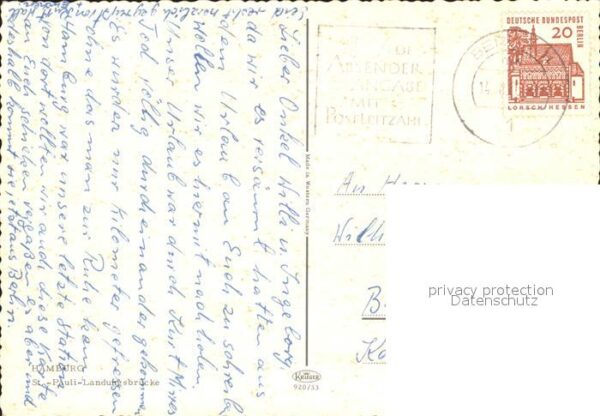 Lieber Onkel Willi u. Ingeborg
da wir es versäumt hatten aus
dem Urlaub an Euch zu schreiben
wollen wir es hiermit nach holen.
Unser Urlaub war durch Kurt-Wies
Tod völlig durcheinander gekommen
Es wurden nur Kilometer gefressen
ohne das man zur Ruhe kam
Hamburg war unsere letzte Station
von dort wollten wir auch diese Karte
an Euch schicken vergaßen es aber und
Seid recht herzlich gegrüßt
HAMBURG
St.-Pauli-Landungsbrücke
Made in Western Germany
Krüger
920/53
ABSENDER-
ANGABE
MIT
POSTLEITZAHL
BERLIN
14
1
DEUTSCHE BUNDESPOST
BERLIN
20
LORSCH/HESSEN
An
privacy protection
Datenschutz